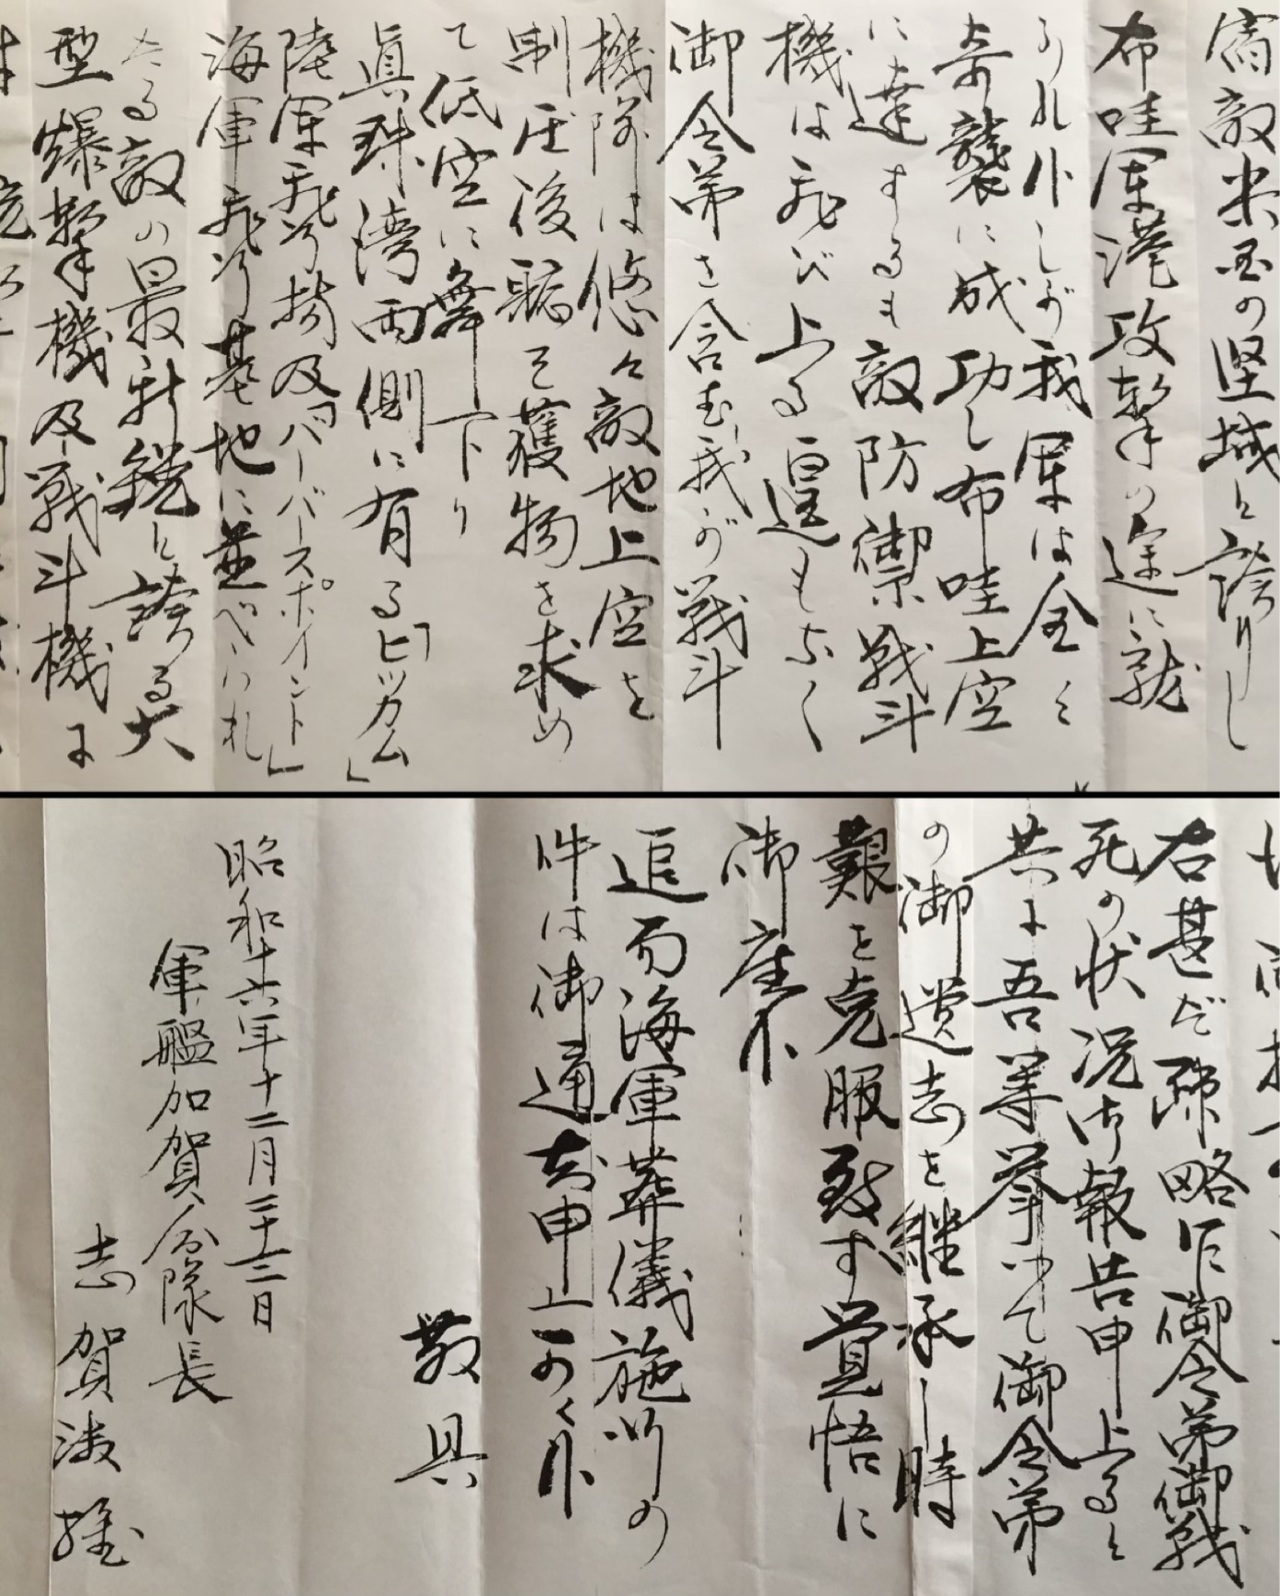 宿敵米国の堅城と誇りし
布哇軍港攻撃の途に就
かれ候しが我軍は全く
奇襲に成功し布哇上空
に達するも敵防禦戦斗
機は飛び上る遑もなく
御令弟を含む我が戦斗
機隊は悠々敵地上空を
制圧後翼を獲物を求め
て低空に舞下り
真珠湾両側に有る「ヒッカム」
陸軍飛行場及「バーバースポイント」
海軍飛行基地に並べられ
たる敵の最新鋭と誇る大
型爆撃機及戦斗機に
右甚だ疎略乍御令弟御戦
死の状況御報告申上ると
共に吾等挙って御令弟
の御遺志を継承し時
艱を克服致す覚悟に
御座候
追而海軍葬儀施行の
件は御通知申上可く候
敬具
昭和十六年十二月二十二日
軍艦加賀分隊長
志賀淑雄